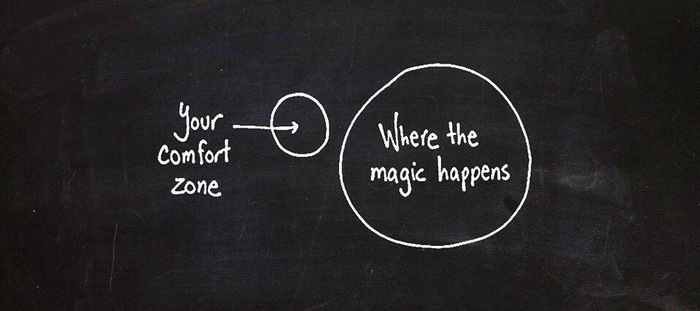 Your
comfort
zone
Where the
magic happens